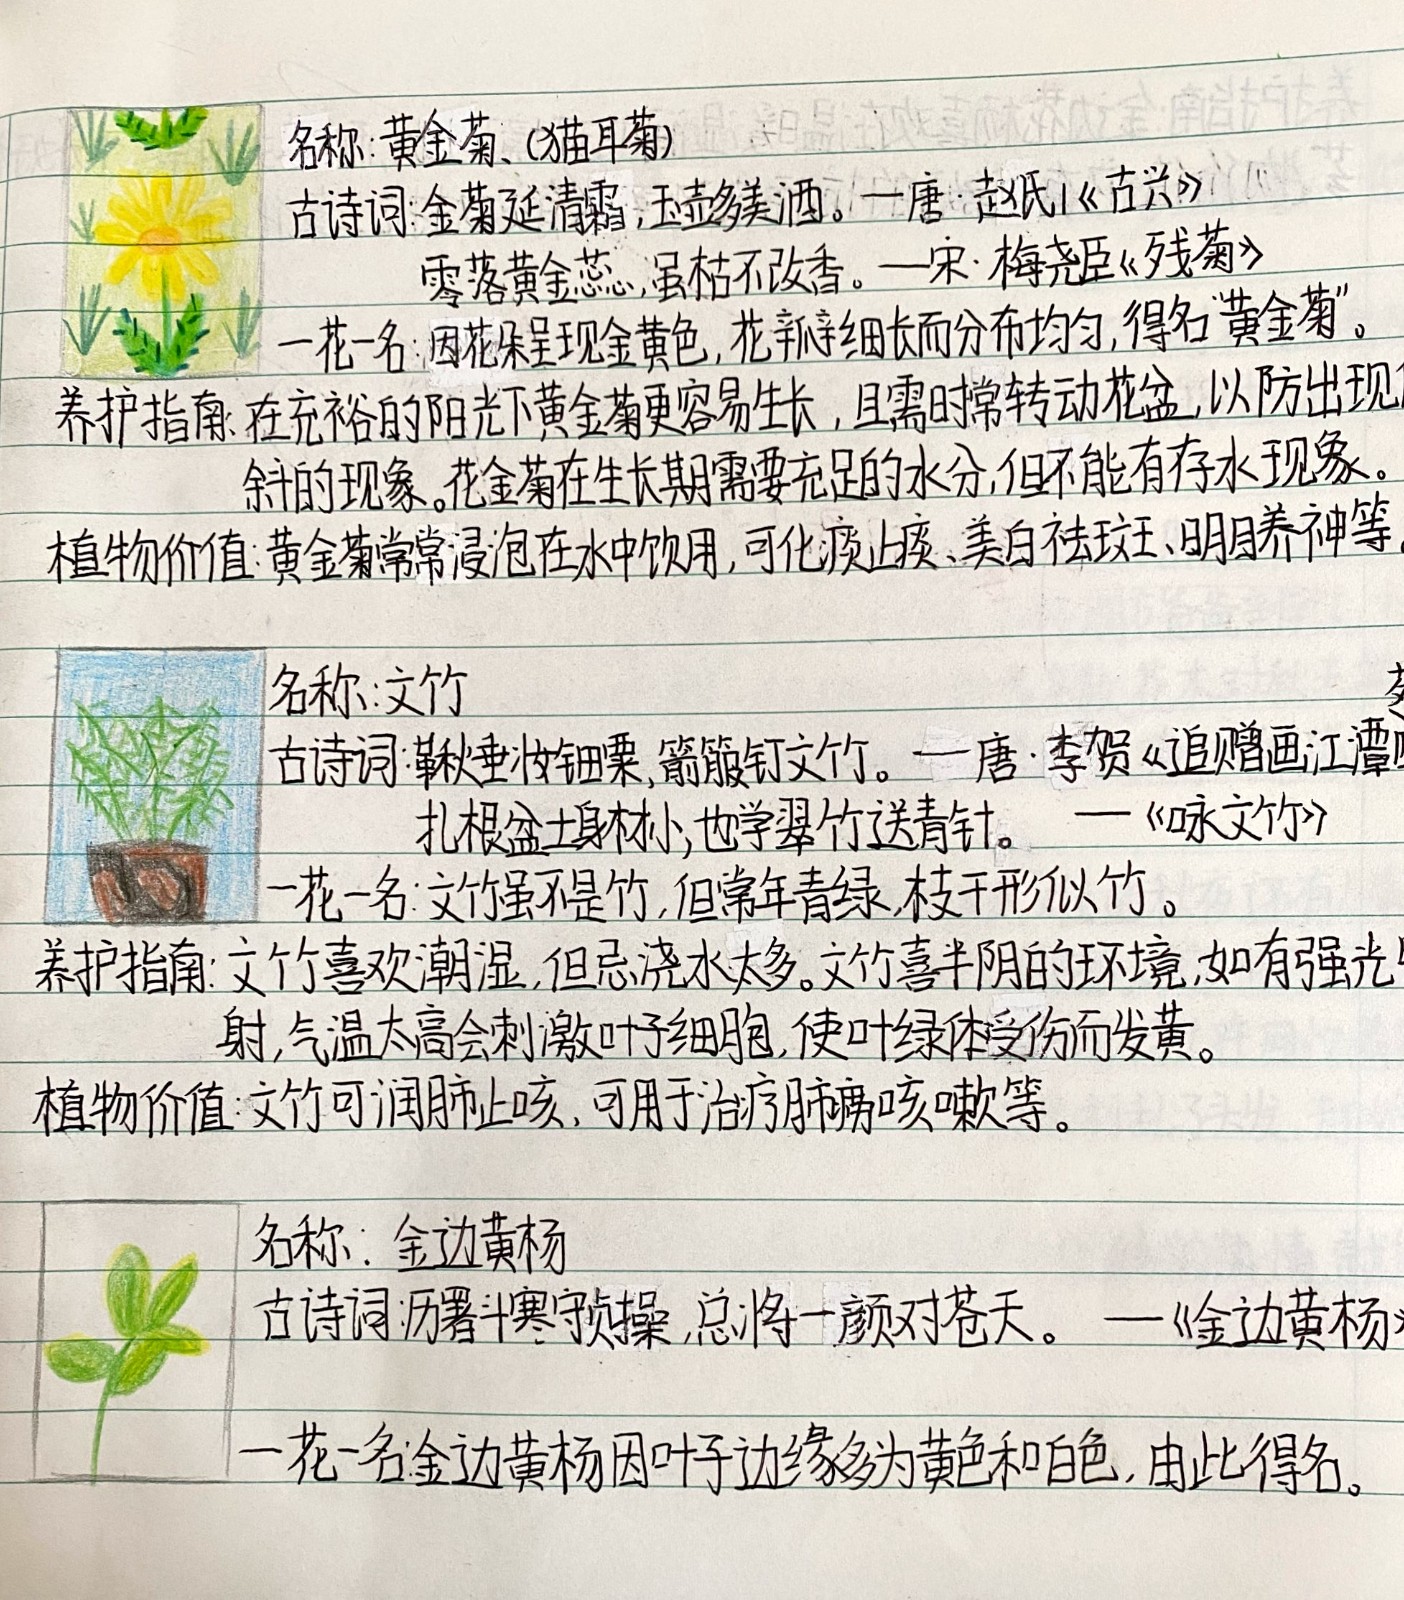 名称:黄金菊、(猫耳菊)
古诗词:金菊延清霜,玉壶多美酒。—唐·赵氏《古兴》
零落黄金蕊,虽枯不改香。—宋·梅尧臣《残菊》
一花一名:因花朵呈现金黄色,花瓣细长而分布均匀,得名“黄金菊”。
养护指南:在充裕的阳光下黄金菊更容易生长,且需时常转动花盆,以防出现
斜的现象。花金菊在生长期需要充足的水分,但不能有存水现象。
植物价值:黄金菊常常浸泡在水中饮用,可化痰止痰、美白祛斑、明目养神等。
名称:文竹
古诗词:鞦垂妆钿粟,箭箙钉文竹。—唐·李贺《追赠画江潭
扎根盆土身材小,也学翠竹送青针。—《咏文竹》
一花一名:文竹虽不是竹,但常年青绿,枝干形似竹。
养护指南:文竹喜欢潮湿,但忌浇水太多。文竹喜半阴的环境,如有强光
射,气温太高会刺激叶子细胞,使叶绿体受伤而发黄。
植物价值:文竹可润肺止咳,可用于治疗肺痨咳嗽等。
名称:金边黄杨
古诗词:历署斗寒守贞操,总将一颜对苍天。—《金边黄杨》
一花一名:金边黄杨因叶子边缘多为黄色和白色,由此得名。